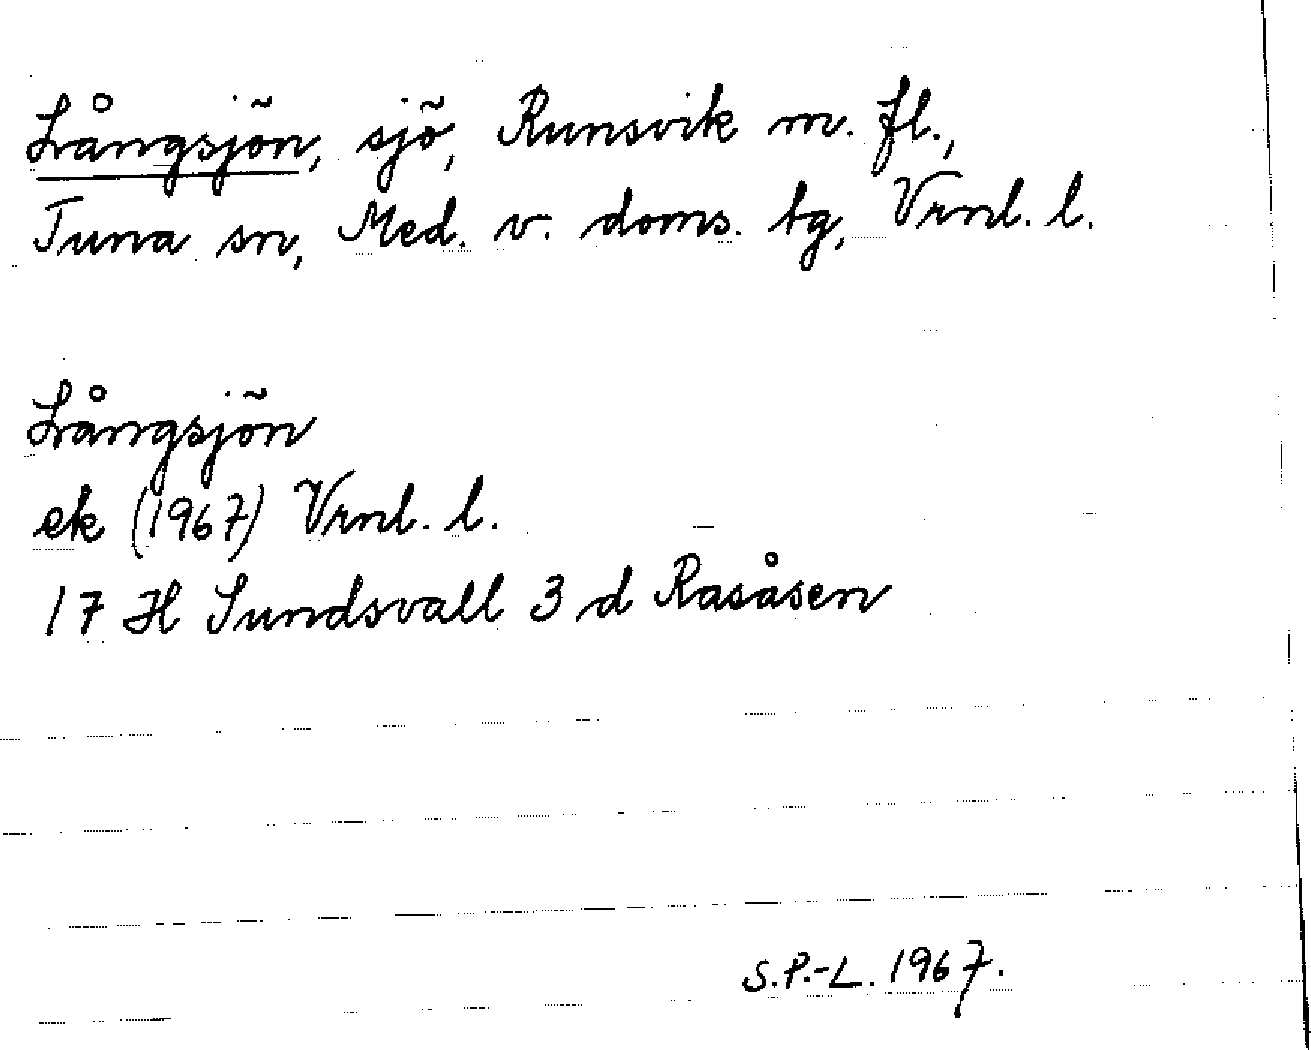 Långsjön, sjö, Runsvik m. fl.,
Tuna sn, Med. v. doms. tg, Vrnl. l.
Långsjön
ek (1967) Vrnl. l.
17 H Sundsvall 3 d Rasåsen
S.P.-L. 1967.